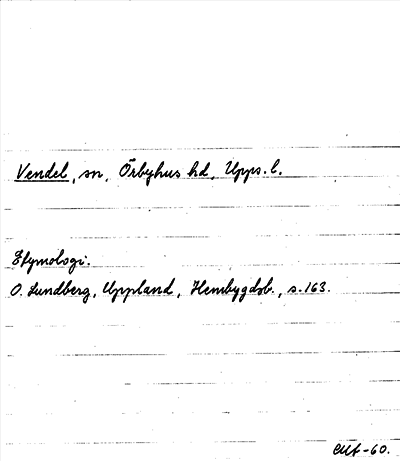 Vendel, sn, Örbyhus hd, Upps. l.
Etymologi.
O. Lundberg, Uppland, Hembygdsb., s. 163.
-60.